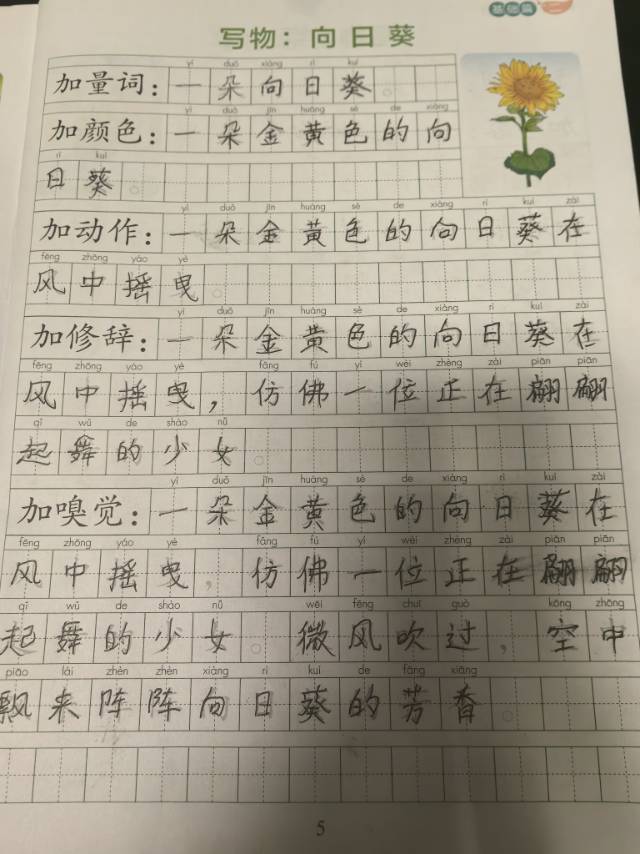 基础篇
写物：向日葵
yí duǒ xiàng rì kuí
加量词：一朵向日葵。
yì duǒ jīn huáng sè de xiàng
加颜色：一朵金黄色的向
rì kuí
日葵。
yì duǒ jīn huáng sè de xiàng rì kuí zài
加动作：一朵金黄色的向日葵在
fēng zhōng yáo yè
风中摇曳。
yì duǒ jīn huáng sè de xiàng rì kuí zài
加修辞：一朵金黄色的向日葵在
fēng zhōng yáo yè fǎng fú yí wèi zhèng zài piān piān
风中摇曳，仿佛一位正在翩翩
qǐ wǔ de shào nǚ
起舞的少女。
yì duǒ jīn huáng sè de xiàng rì kuí zài
加嗅觉：一朵金黄色的向日葵在
fēng zhōng yáo yè fǎng fú yí wèi zhèng zài piān piān
风中摇曳，仿佛一位正在翩翩
qǐ wǔ de shào nǚ wēi fēng chuī guò kōng zhōng
起舞的少女。微风吹过，空中
piāo lái zhèn zhèn xiàng rì kuí de fāng xiāng
飘来阵阵向日葵的芳香。
5